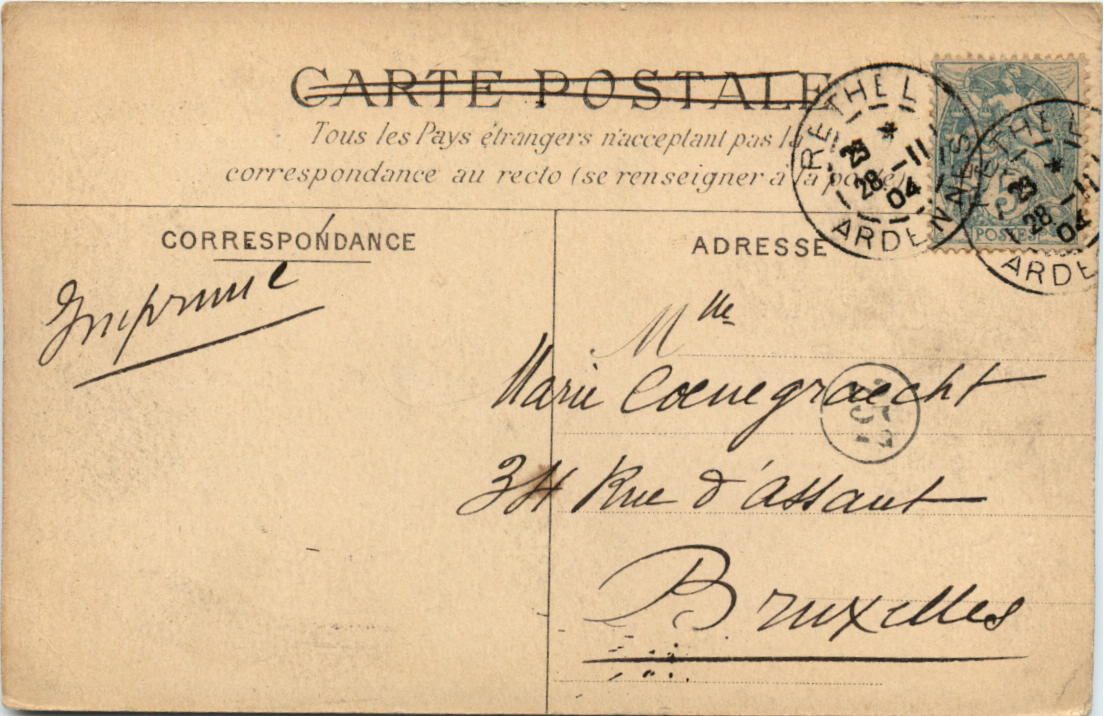 CARTE POSTALE
Tous les Pays étrangers n'acceptant pas la
correspondance au recto (se renseigner à la poste)
RETHEL
23
28 -11
04
ARDENNES
RETHEL
23
28 -11
04
ARDE
5
POSTES
CORRESPONDANCE
Imprimé
ADRESSE
Mlle
Marie Coenegraecht
34 Rue d'Assaut
Bruxelles